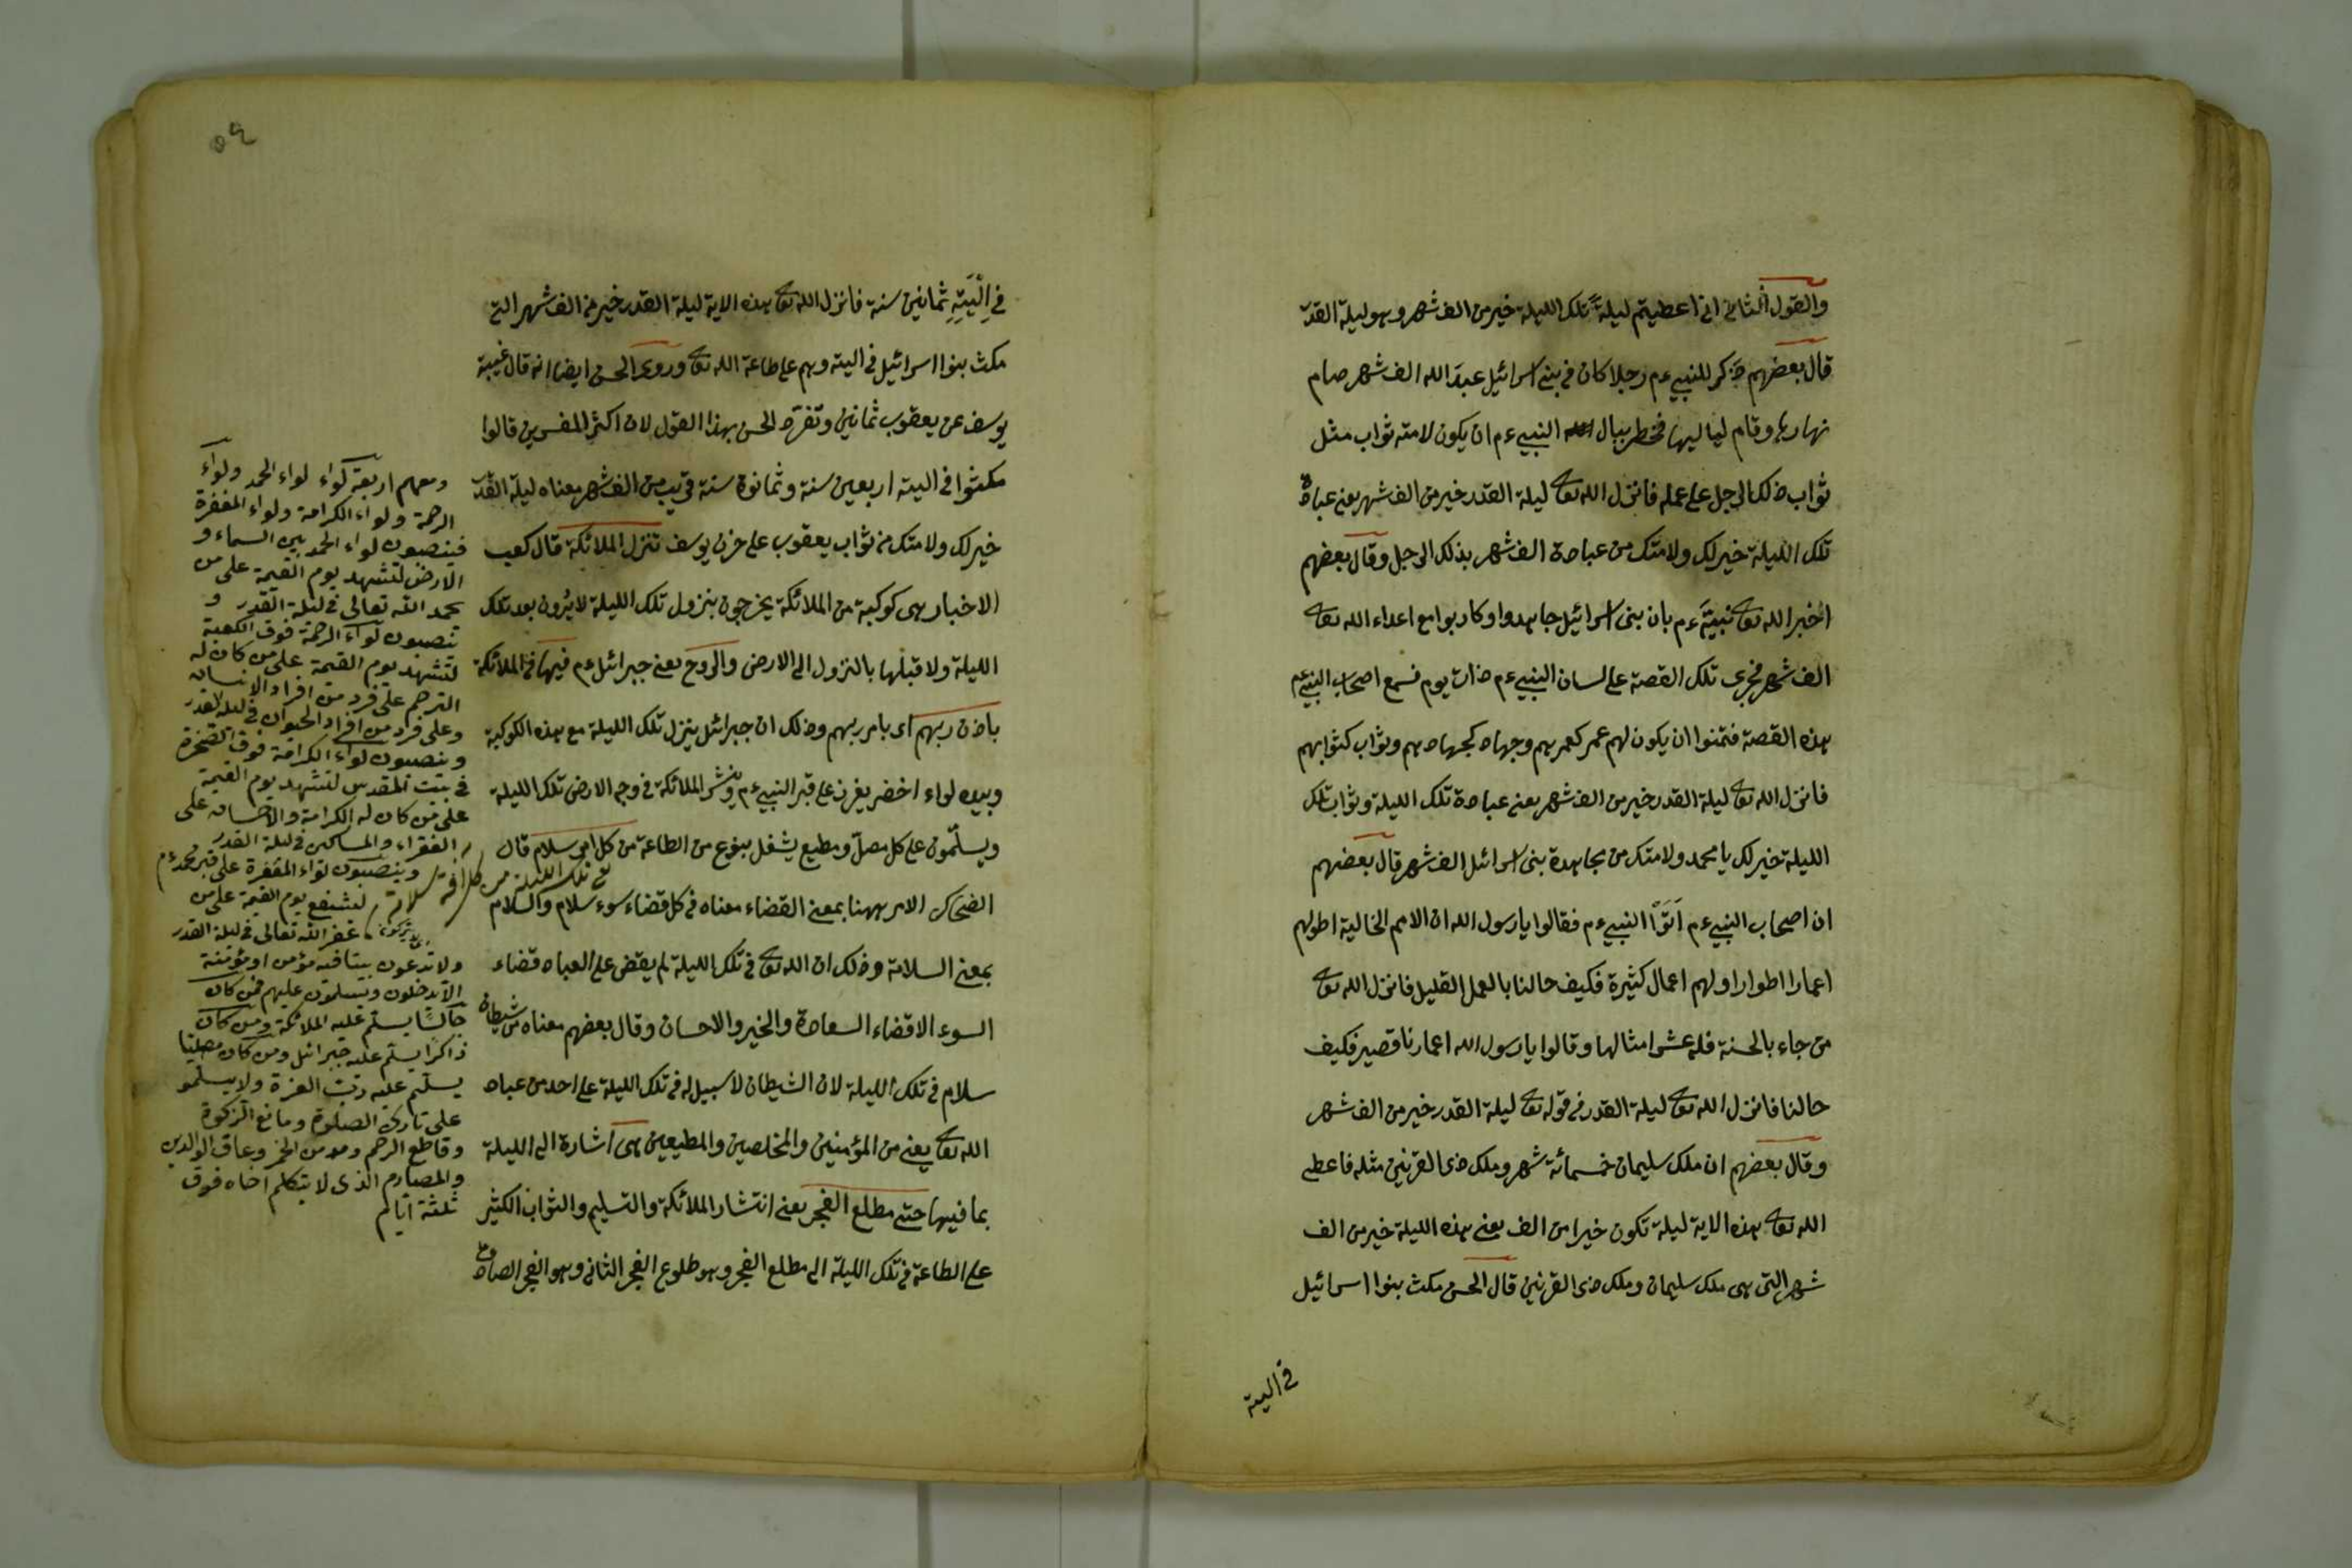 والقول الثانى انى اعطيتم ليلة تلك الليلة خير من الف شهر وهو ليلة القدر
قال بعضهم ذكر للنبى ءم رجلا كان فى بنى اسرائيل عبد الله الف شهر صام
نهارها وقام لياليها فخطر ببال النبى ءم ان يكون لامته ثواب مثل
ثواب ذلك الرجل على عمله فانزل الله تعا ليلة القدر خير من الف شهر يعنى عبادة
تلك الليلة خير لك ولامتك من عبادة الف شهر بذلك الرجل وقال بعضهم
اخبر الله تعا نبيّه ءم بان بنى اسرائيل جاهدوا وحاربوا مع اعداء الله تعا
الف شهر فجرى تلك القصة على لسان النبى ءم ذات يوم فسمع اصحاب النبى ءم
هذه القصة فتمنوا ان يكون لهم عمر كعمرهم وجهاد كجهادهم وثواب كثوابهم
فانزل الله تعا ليلة القدر خير من الف شهر يعنى عبادة تلك الليلة وثواب تلك
الليلة خير لك يا محمد ولامتك من مجاهدة بنى اسرائل الف شهر قال بعضهم
ان اصحاب النبى ءم اتوا النبى ءم فقالوا يا رسول الله ان الامم الخالية اطولهم
اعمارا اطوارا ولهم اعمال كثيرة فكيف حالنا بالعمل القليل فانزل الله تعا
من جاء بالحسنة فله عشر امثالها وقالوا يا رسول الله اعمارنا قصير فكيف
حالنا فانزل الله تعا ليلة القدر فى قوله تعا ليلة القدر خير من الف شهر
وقال بعضهم ان ملك سليمان خمسمائة شهر وملك ذى القرنين مثله فاعطى
الله تعا هذه الاية ليلة تكون خيرا من الف يعنى هذه الليلة خير من الف
شهر التى هى ملك سليمان وملك ذى القرنين قال الحسن مكث بنوا اسرائيل
فى اليته
٥٩
فِى الْيَتِهِ ثمانين سنة فانزل الله تعا هذه الاية ليلة القدر خير من الف شهر التى
مكث بنوا اسرائيل فى اليته وهم على طاعة الله تعا وروى الحسن ايضا انه قال غيبة
يوسف عن يعقوب ثمانين وتفرد الحسن بهذا القول لان اكثر المفسرين قالوا
مكثوا فى اليته اربعين سنة وثمانون سنة قريب من الف شهر معناه ليلة القدر
خير لك ولامتك من ثواب يعقوب على حزن يوسف تنزل الملائكة قال كعب
الاخبار هى كوكبة من الملائكة يخرجون بنزول تلك الليلة لا يرون بعد تلك
الليلة ولا قبلها بالنزول الى الارض والروح يعنى جبرائل ءم فيها فى الملائكة
باذن ربهم اى بامر ربهم وذلك ان جبرائل ينزل تلك الليلة مع هذه الكوكبة
وبيده لواء اخضر يغرز على قبر النبى ءم وينشر الملائكة فى وجه الارض تلك الليلة
ويسلّمون على كل مصلّ ومطيع يشغل بنوع من الطاعة من كل امر سلام قال
فى تلك الليلة من كل افة سلامة
الضحاك الامر ههنا بمعنى القضاء معناه فى كل قضاء سوء سلام والسلام
بمعنى السلامة وذلك ان الله تعا فى تلك الليلة لم يقض على العباد قضاء
السوء الا قضاء السعادة والخير والاحسان وقال بعضهم معناه من شيطان
سلام فى تلك الليلة لان الشيطان لا سبيل له فى تلك الليلة على احد من عباد
الله تعا يعنى من المؤمنين والمخلصين والمطيعين هى اشارة الى الليلة
بما فيها حتى مطلع الفجر يعنى انتشار الملائكة والتسليم والثواب الكثير
على الطاعة فى تلك الليلة الى مطلع الفجر وهو طلوع الفجر الثانى وهو الفجر الصادق
ومعهم اربعة لواء لواء الحمد ولواء
الرحمة ولواء الكرامة ولواء المغفرة
فينصبون لواء الحمد بين السماء و
الارض لتشهد يوم القيمة على من
يحمد الله تعالى فى ليلة القدر و
تنصبون لواء الرحمة فوق الكعبة
لتشهد يوم القيمة على من كان له
الترحم على فرد من افراد الانسان
وعلى فرد من افراد الحيوان فى ليلة القدر
وينصبون لواء الكرامة فوق الصخرة
فى بيت المقدس لتشهد يوم القيمة
على من كان له الكرامة والاحسان على
الفقراء والمساكين فى ليلة القدر
وينصبون لواء المغفرة على قبر محمد ءم
لتشفع يوم القيمة على من
غفر الله تعالى فى ليلة القدر
ولا تدعون بيتا فيه مؤمن او مؤمنة
الا يدخلون ويسلمون عليهم فمن كان
جالسًا يسلم عليه الملائكة ومن كان
ذاكرًا يسلم عليه جبرائل ومن كان مصليا
يسلّم عليه ربّ العزة ولا يسلمو
على تارك الصلوة ومانع الزكوة
وقاطع الرحم ومدمن الخمر وعاق الوالدين
والمصارم الذى لا يتكلم اخاه فوق
ثلثة ايام